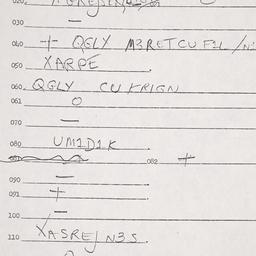 030 —
040 + QGLY M3RETCUF1L/N
050 XARPE
060 QGLY CUKRIGN
061 O
070 —
080 UM1D1K
082 +
090 —
091 +
100 —
110 XASREJN3S.